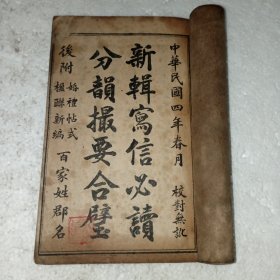 中華民國四年春月
校對無訛
新輯寫信必讀
分韻撮要合璧
後附
婚禮帖式
楹聯新編
百家姓郡名